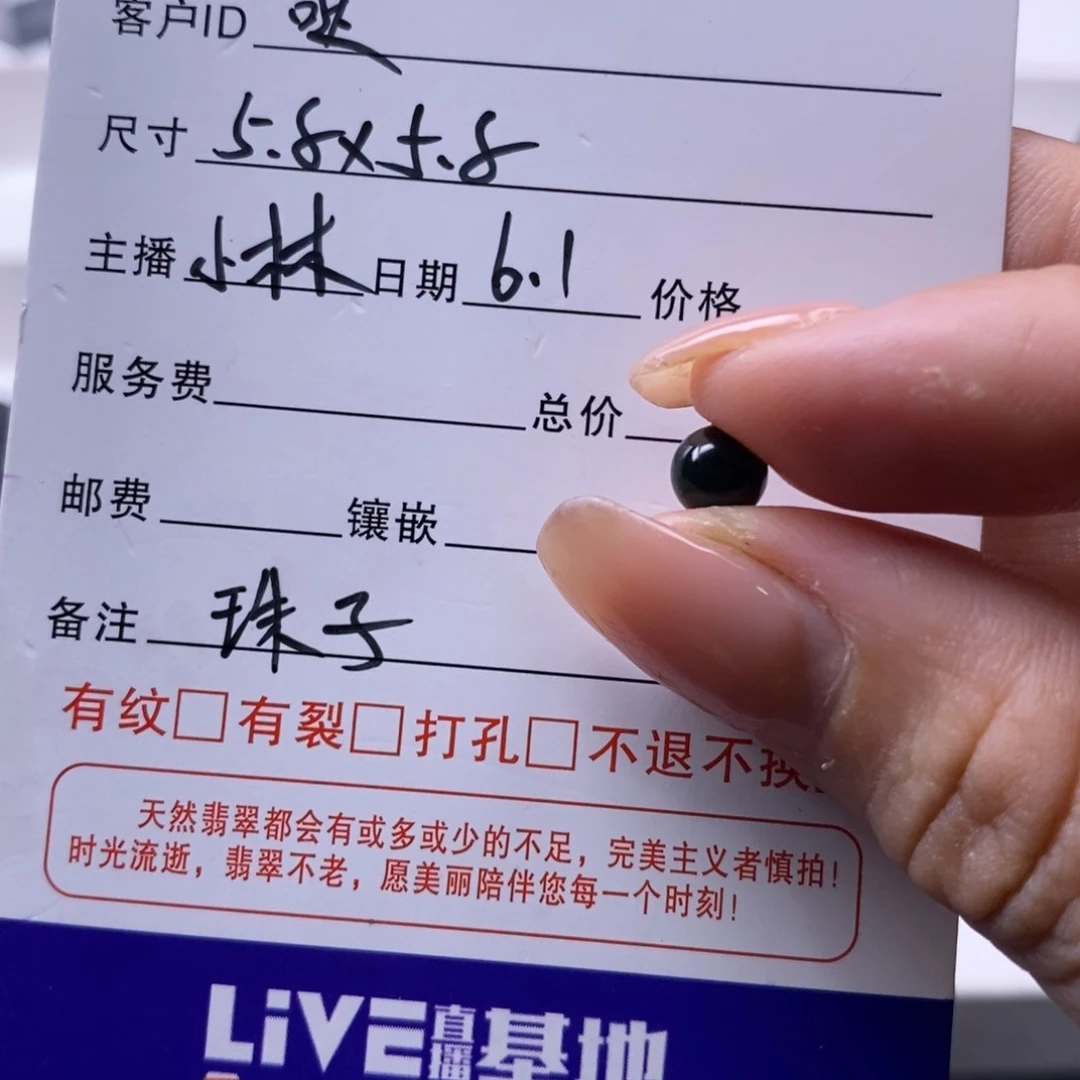 客户ID
尺寸 5.8x5.8
主播 小林 日期 6.1 价格
服务费 总价
邮费 镶嵌
备注 珠子
有纹□有裂□打孔□不退不换
天然翡翠都会有或多或少的不足，完美主义者慎拍！
时光流逝，翡翠不老，愿美丽陪伴您每一个时刻！
LiVE直播基地